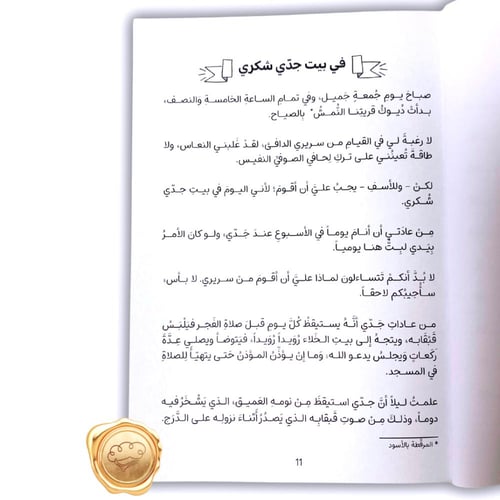 في بيت جدّي شكري
صباحَ يومِ جُمعةٍ جَميل، وفي تمامِ الساعةِ الخامسةِ والنصف،
بدأتْ دُيوكُ قريتِنا النُّمشُ* بالصياح.
لا رغبةَ لي في القيامِ من سريري الدافئ، لقدْ غَلبني النعاس، ولا
طاقةَ تُعينُني على تركِ لِحافي الصوفيِّ النفيس.
لكنْ - وللأسفِ - يجبُ عليَّ أن أقومَ؛ لأني اليومَ في بيتِ جدّي
شُكري.
مِنْ عادَتي أن أنامَ يوماً في الأسبوعِ عندَ جَدّي، ولو كان الأمرُ
بِيَدي لبِتُّ هنا يومياً.
لا بُدَّ أنكمْ تَتساءلون لماذا عليَّ أن أقومَ من سريري. لا بأس،
سأُجيبُكم لاحقاً.
مِن عاداتِ جَدّي أنَّهُ يستيقظُ كُلَّ يومٍ قبلَ صلاةِ الفَجرِ فيلْبَسُ
قُبْقابَه، ويتجهُ إلى بيتِ الخَلاء رُوَيداً رُوَيداً، فيَتوضأ ويصلي عِدَّةَ
رَكعاتٍ ويجلسُ يدعو الله، وَما إنْ يؤذّنُ المؤذنُ حَتى يتهيّأَ للصلاةِ
في المسجد.
علمتُ ليلاً أنَّ جدّي استيقظَ مِنْ نومِهِ العَميق، الذي يَشْخُرُ فيه
دوماً، وذلك مِن صوتِ قبقابِهِ الذي يَصدُرُ أَثناءَ نزولهِ على الدَّرَج.
* المرقطة بالأسود
11